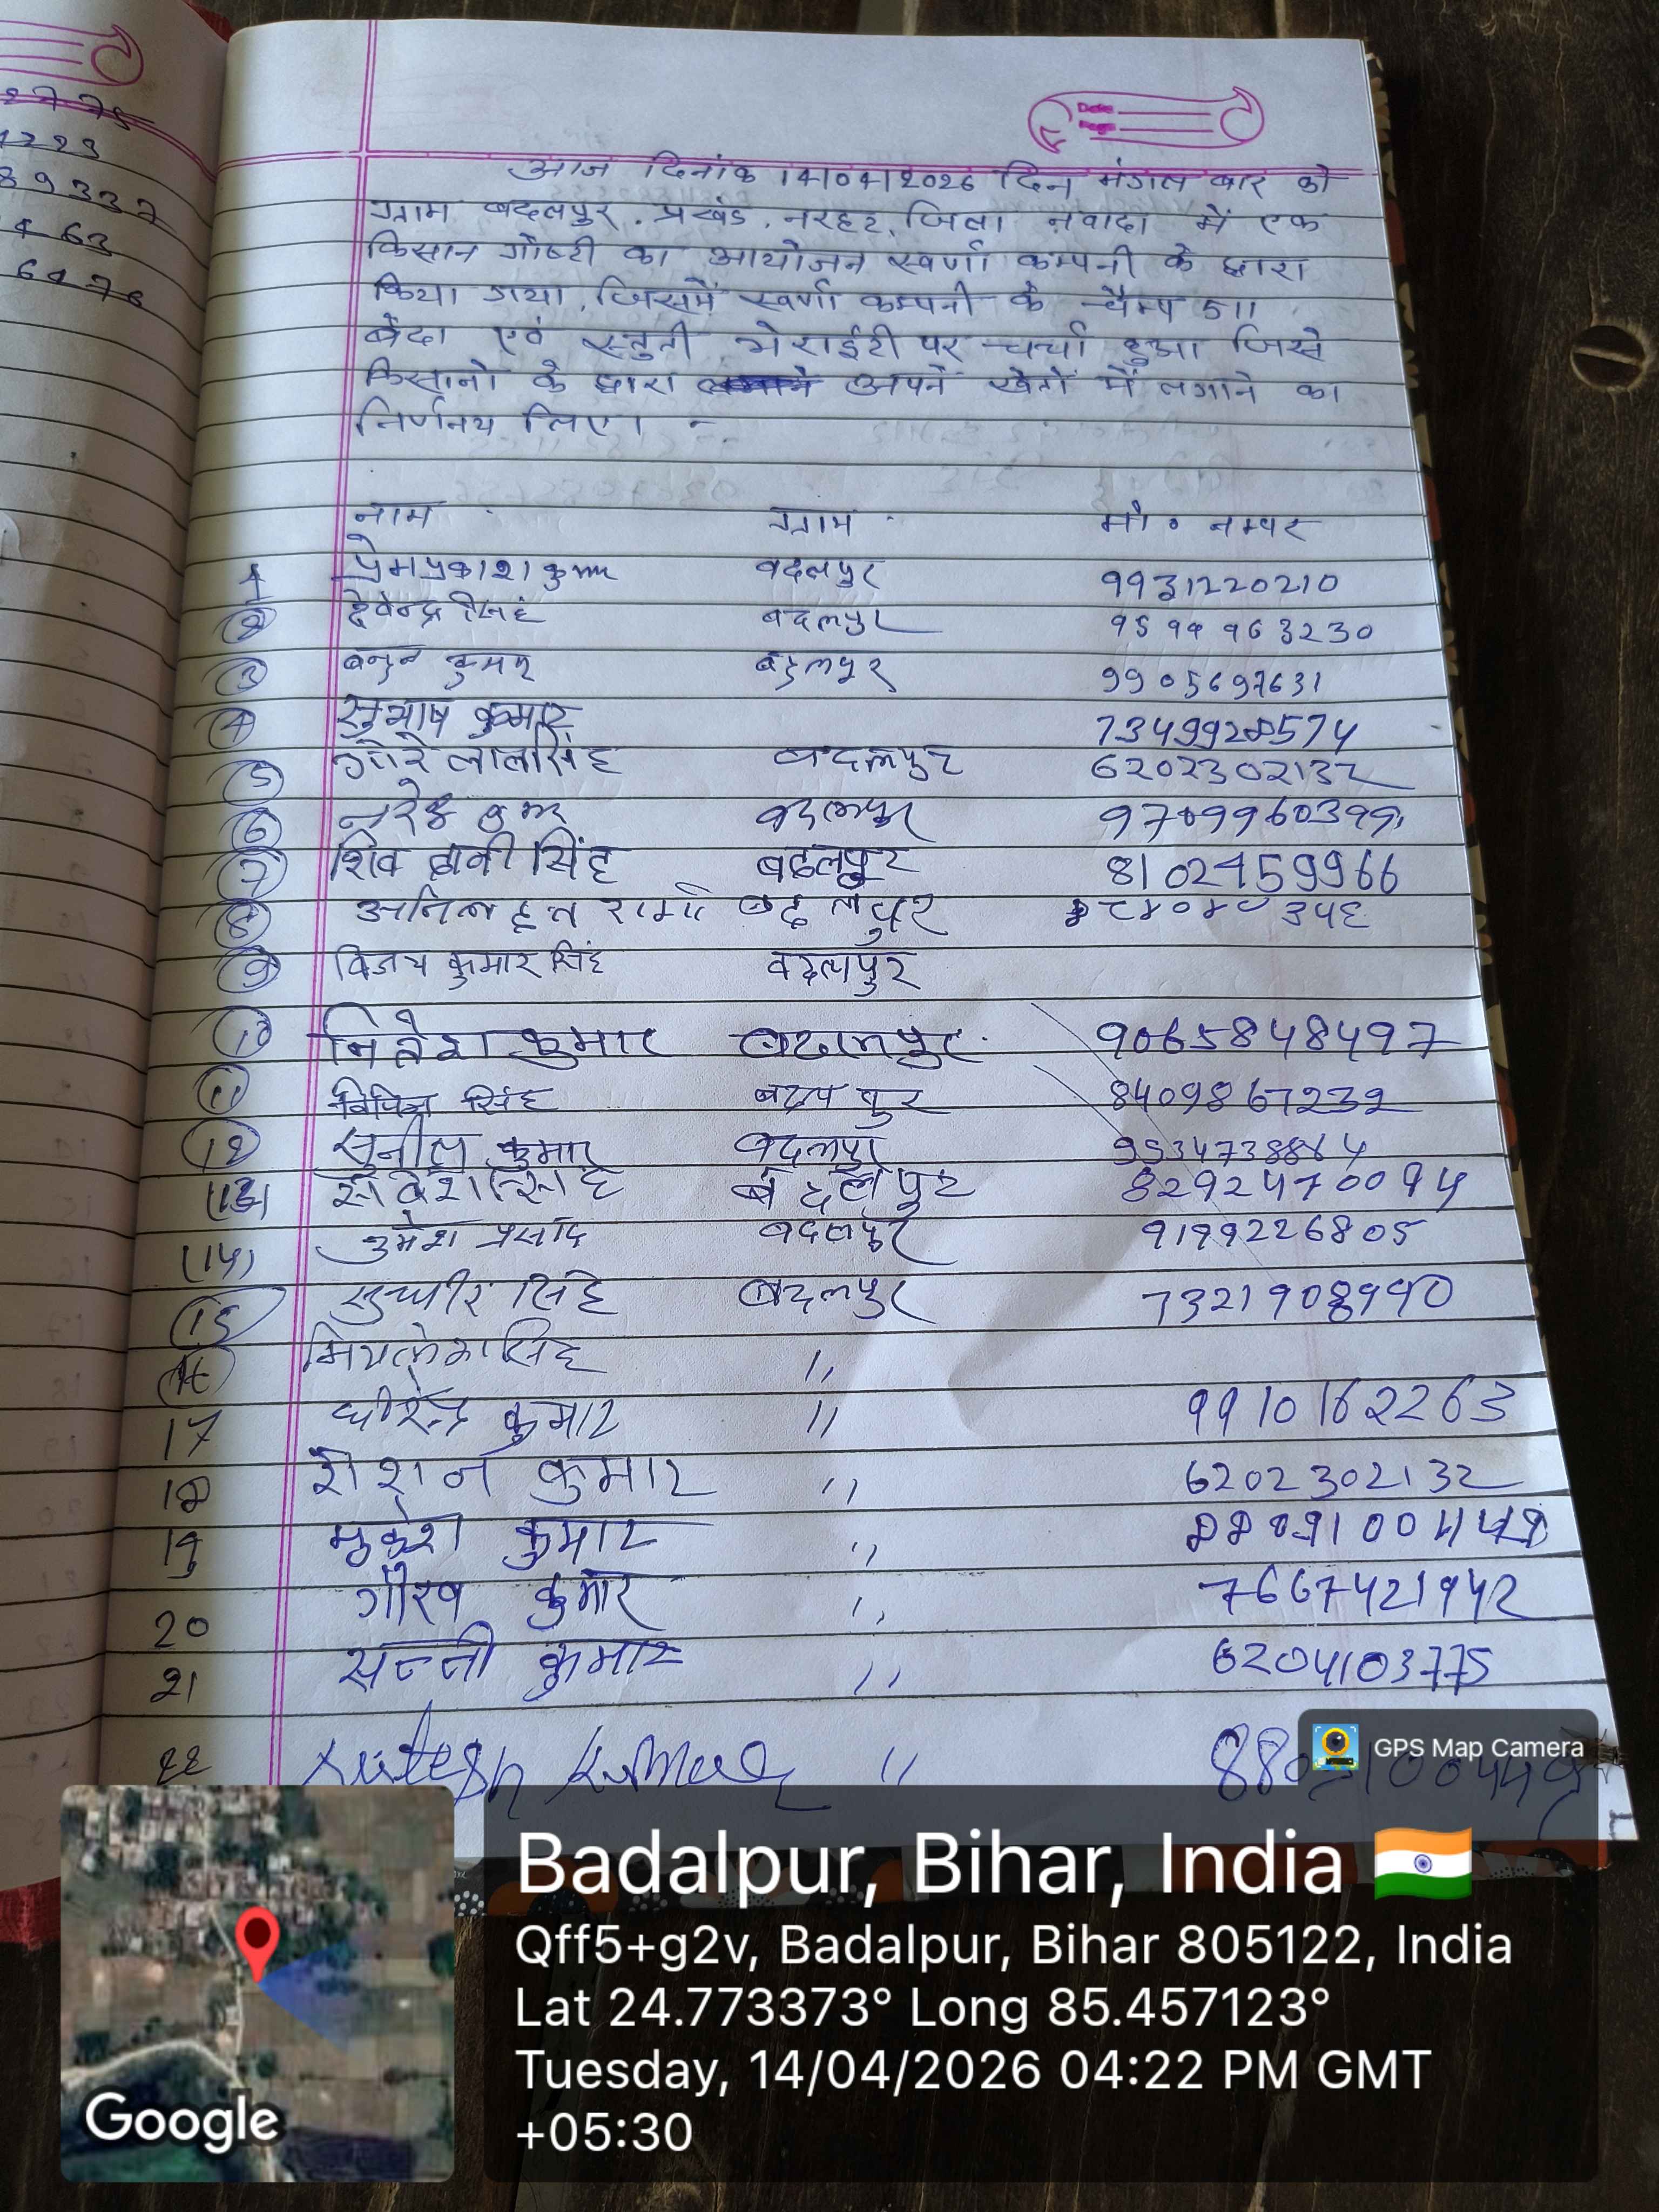 2775
1223
89337
4 63
6476
Date
Page
आज दिनांक 14/04/2026 दिन मंगल वार को
ग्राम बदलपुर, प्रखंड, नरहट, जिला नवादा में एक
किसान गोष्टी का आयोजन स्वर्णा कम्पनी के द्वारा
किया गया, जिसमें स्वर्णा कम्पनी के चैम्प 511
बेदा एवं स्तुती भेराईटी पर चर्चा हुआ जिसे
किसानो के द्वारा अपने खेतों में लगाने का
निर्णनय लिए। -
नाम ग्राम मो० नम्बर
1 प्रेम प्रकाश कुमार बदलपुर 9931220210
2 देवेन्द्र सिंह बदलपुर
3 कुमार बदलपुर 9905697631
4 सुभाष कुमार 7349928574
5 गोरे लाल सिंह बदलपुर 6202302132
6 नरेश कुमार बदलपुर 9709960399
7 शिव दानी सिंह बदलपुर 8102459966
8 अनिल दत्त शर्मा बदलपुर
9 विजय कुमार सिंह बदलपुर
10 नितेश कुमार बदलपुर 9065848497
11 विपिन सिंह बदलपुर 8409867232
12 सुनील कुमार बदलपुर 9534738864
(13) सर्वेश सिंह बदलपुर 8292470094
(14) उमेश प्रसाद बदलपुर 9199226805
15 सुधीर सिंह बदलपुर 7321908990
16 मिथलेश सिंह ,,
17 धीरेन्द्र कुमार ,, 9910162263
18 रौशन कुमार ,, 6202302132
19 मुकेश कुमार ,,
20 गौरव कुमार ,, 7667421942
21 सन्नी कुमार ,, 6204103775
22 Nitesh Kumar ,,
GPS Map Camera
Badalpur, Bihar, India
Qff5+g2v, Badalpur, Bihar 805122, India
Lat 24.773373° Long 85.457123°
Tuesday, 14/04/2026 04:22 PM GMT
+05:30
Google